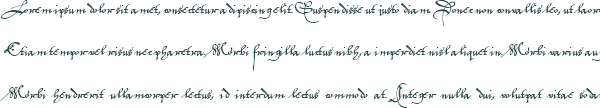 Lorem ipsum dolor sit amet, consectetur adipiscing elit. Suspendisse ut justo diam. Donec non convallis leo, ut laor
Etiam tempor vel risus nec pharetra. Morbi fringilla luctus nibh, a imperdiet nisl aliquet in. Morbi varius au
Morbi hendrerit ullamcorper lectus, id interdum lectus commodo at. Integer nulla dui, volutpat vitae soda